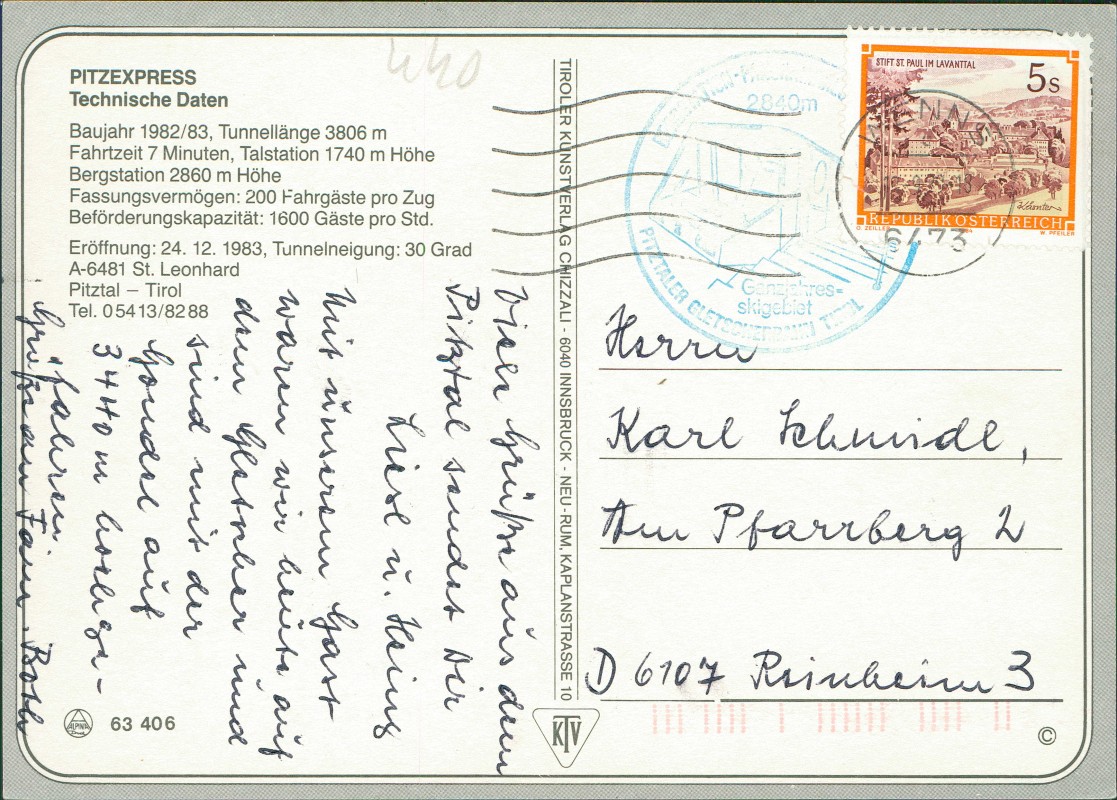 440
PITZEXPRESS
Technische Daten
Baujahr 1982/83, Tunnellänge 3806 m
Fahrtzeit 7 Minuten, Talstation 1740 m Höhe
Bergstation 2860 m Höhe
Fassungsvermögen: 200 Fahrgäste pro Zug
Beförderungskapazität: 1600 Gäste pro Std.
Eröffnung: 24. 12. 1983, Tunnelneigung: 30 Grad
A-6481 St. Leonhard
Pitztal – Tirol
Tel. 05413/8288
Viele Grüße aus dem
Pitztal sendet Dir
Liesl u. Heinz
Mit unserem Gast
waren wir heute auf
dem Gletscher und
sind mit der
Gondel auf
3440 m hochge-
fahren.
Grüße an Fam. Roth
ALPINA
63 406
TIROLER KUNSTVERLAG CHIZZALI - 6040 INNSBRUCK - NEU-RUM, KAPLANSTRASSE 10
KTV
STIFT ST. PAUL IM LAVANTTAL
5s
REPUBLIK ÖSTERREICH
O. ZEILLER
W. PFEILER
WENNS
6473
2840m
Ganzjahres=
skigebiet
PITZTALER GLETSCHERBAHN TIROL
Herrn
Karl Schmidl,
Am Pfarrberg 2
D 6107 Reinheim 3
©